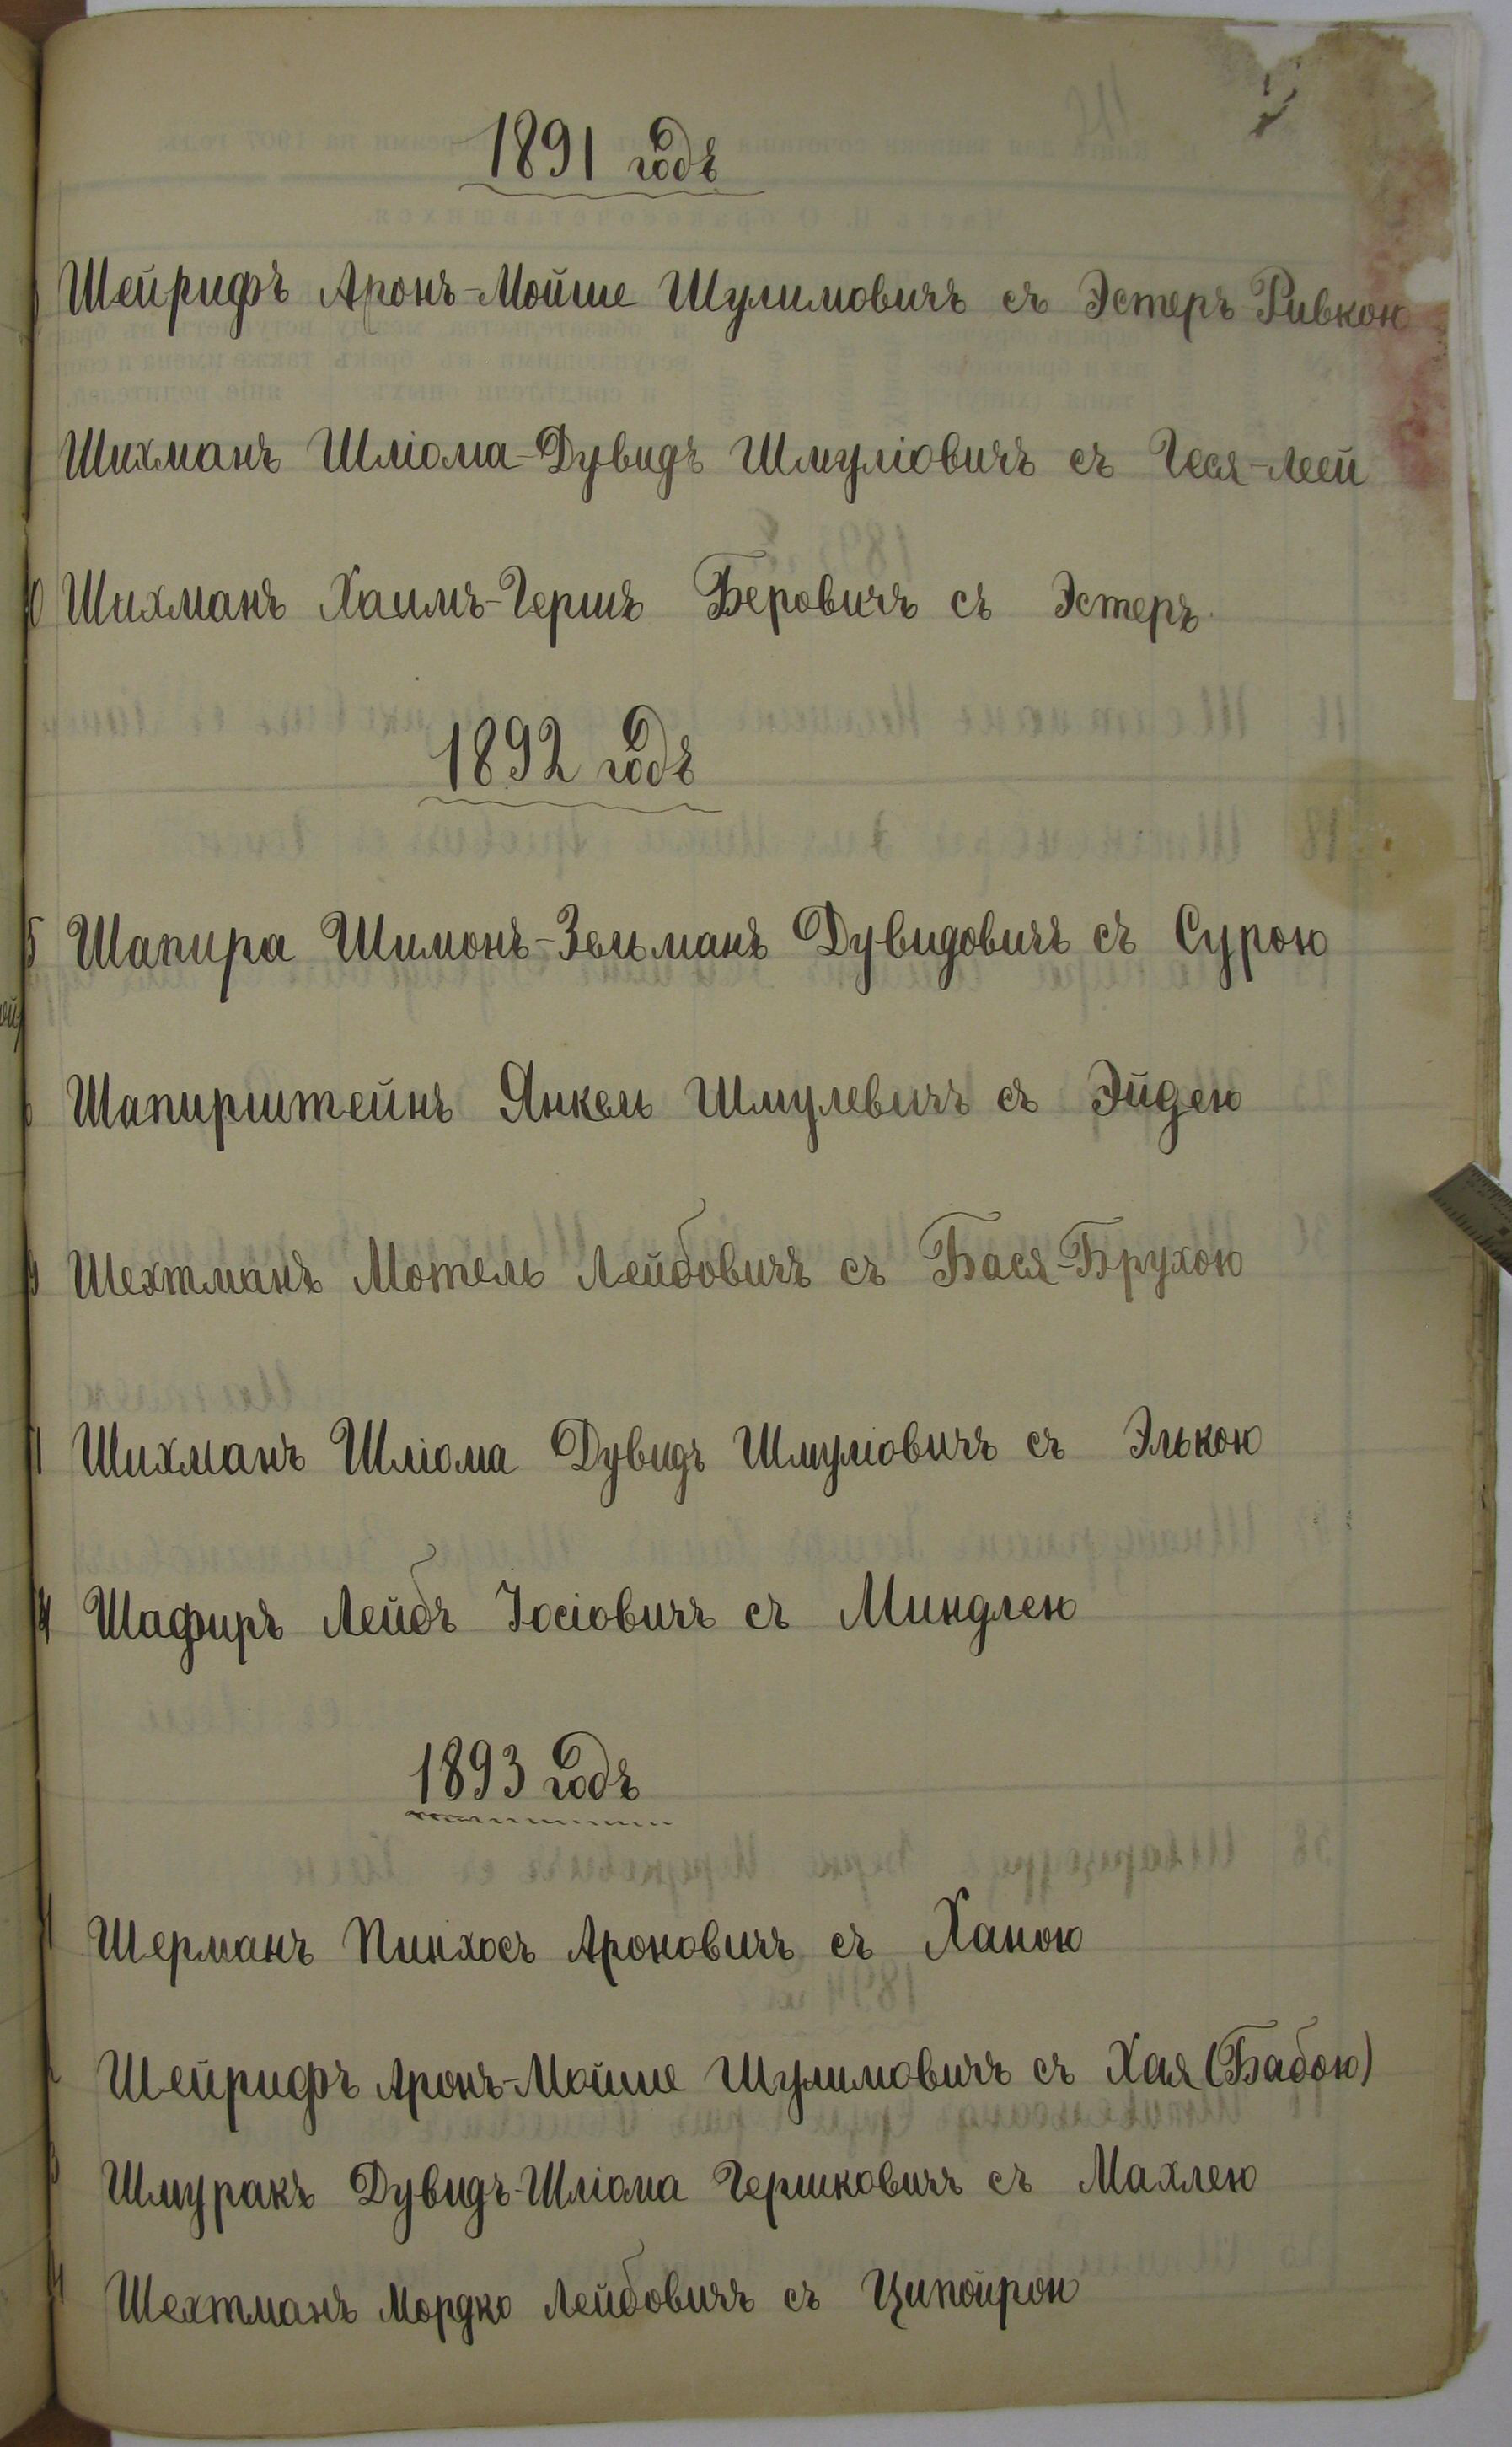 1891 годъ
Шейрифъ Аронъ-Мойше Шулимовичъ съ Эстеръ-Ривкою
Шихманъ Шліома-Дувидъ Шмуліовичъ съ Геся-Леей
Шихманъ Хаимъ-Гершъ Беровичъ съ Эстеръ
1892 годъ
5 Шапира Шимонъ-Зельманъ Дувидовичъ съ Сурою
Шапирштейнъ Янкель Шмулевичъ съ Эйдею
Шехтманъ Мотель Лейбовичъ съ Бася-Брухою
Шихманъ Шліома Дувидъ Шмуліовичъ съ Элькою
Шафиръ Лейбъ Іосіовичъ съ Миндлею
1893 годъ
Шерманъ Пинхосъ Ароновичъ съ Ханою
Шейрифъ Аронъ-Мойше Шулимовичъ съ Хая (Бабою)
Шмуракъ Дувидъ-Шліома Гершковичъ съ Махлею
4 Шехтманъ Мордко Лейбовичъ съ Ципойрою